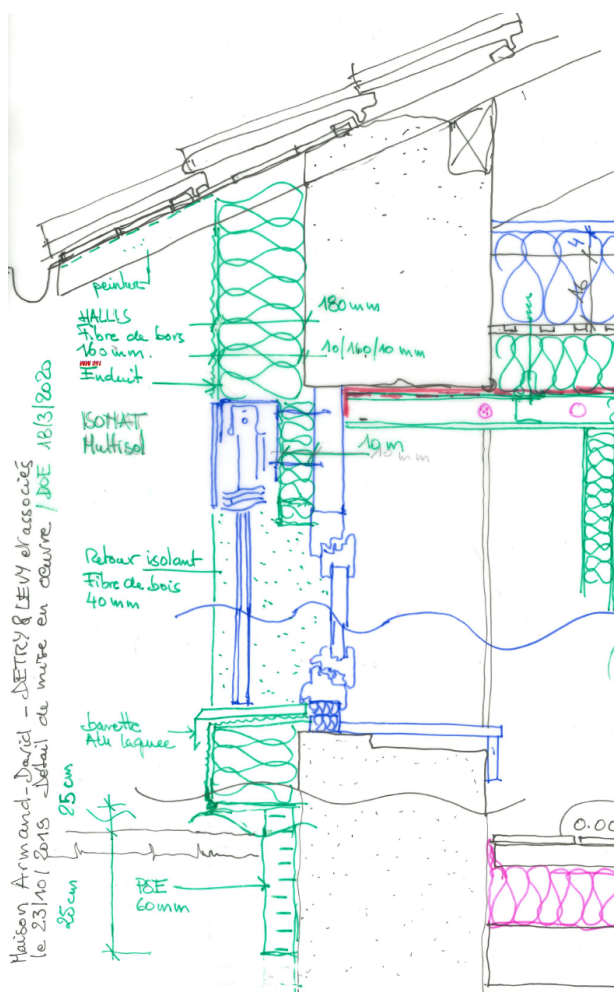 peinture
HALLIS
Fibre de bois
160 mm.
160 mm
Enduit
180 mm
10/160/10 mm
4
16
ISOMAT
Multisol
10 m
10 mm
Retour isolant
Fibre de bois
40 mm
bavette
Alu laquée
25 cm
0.00
PSE
60 mm
25 cm
Maison Armand-David - DETRY & LEVY et associés
le 23/10/2015 - Détail de mise en œuvre / DOE 18/3/2020